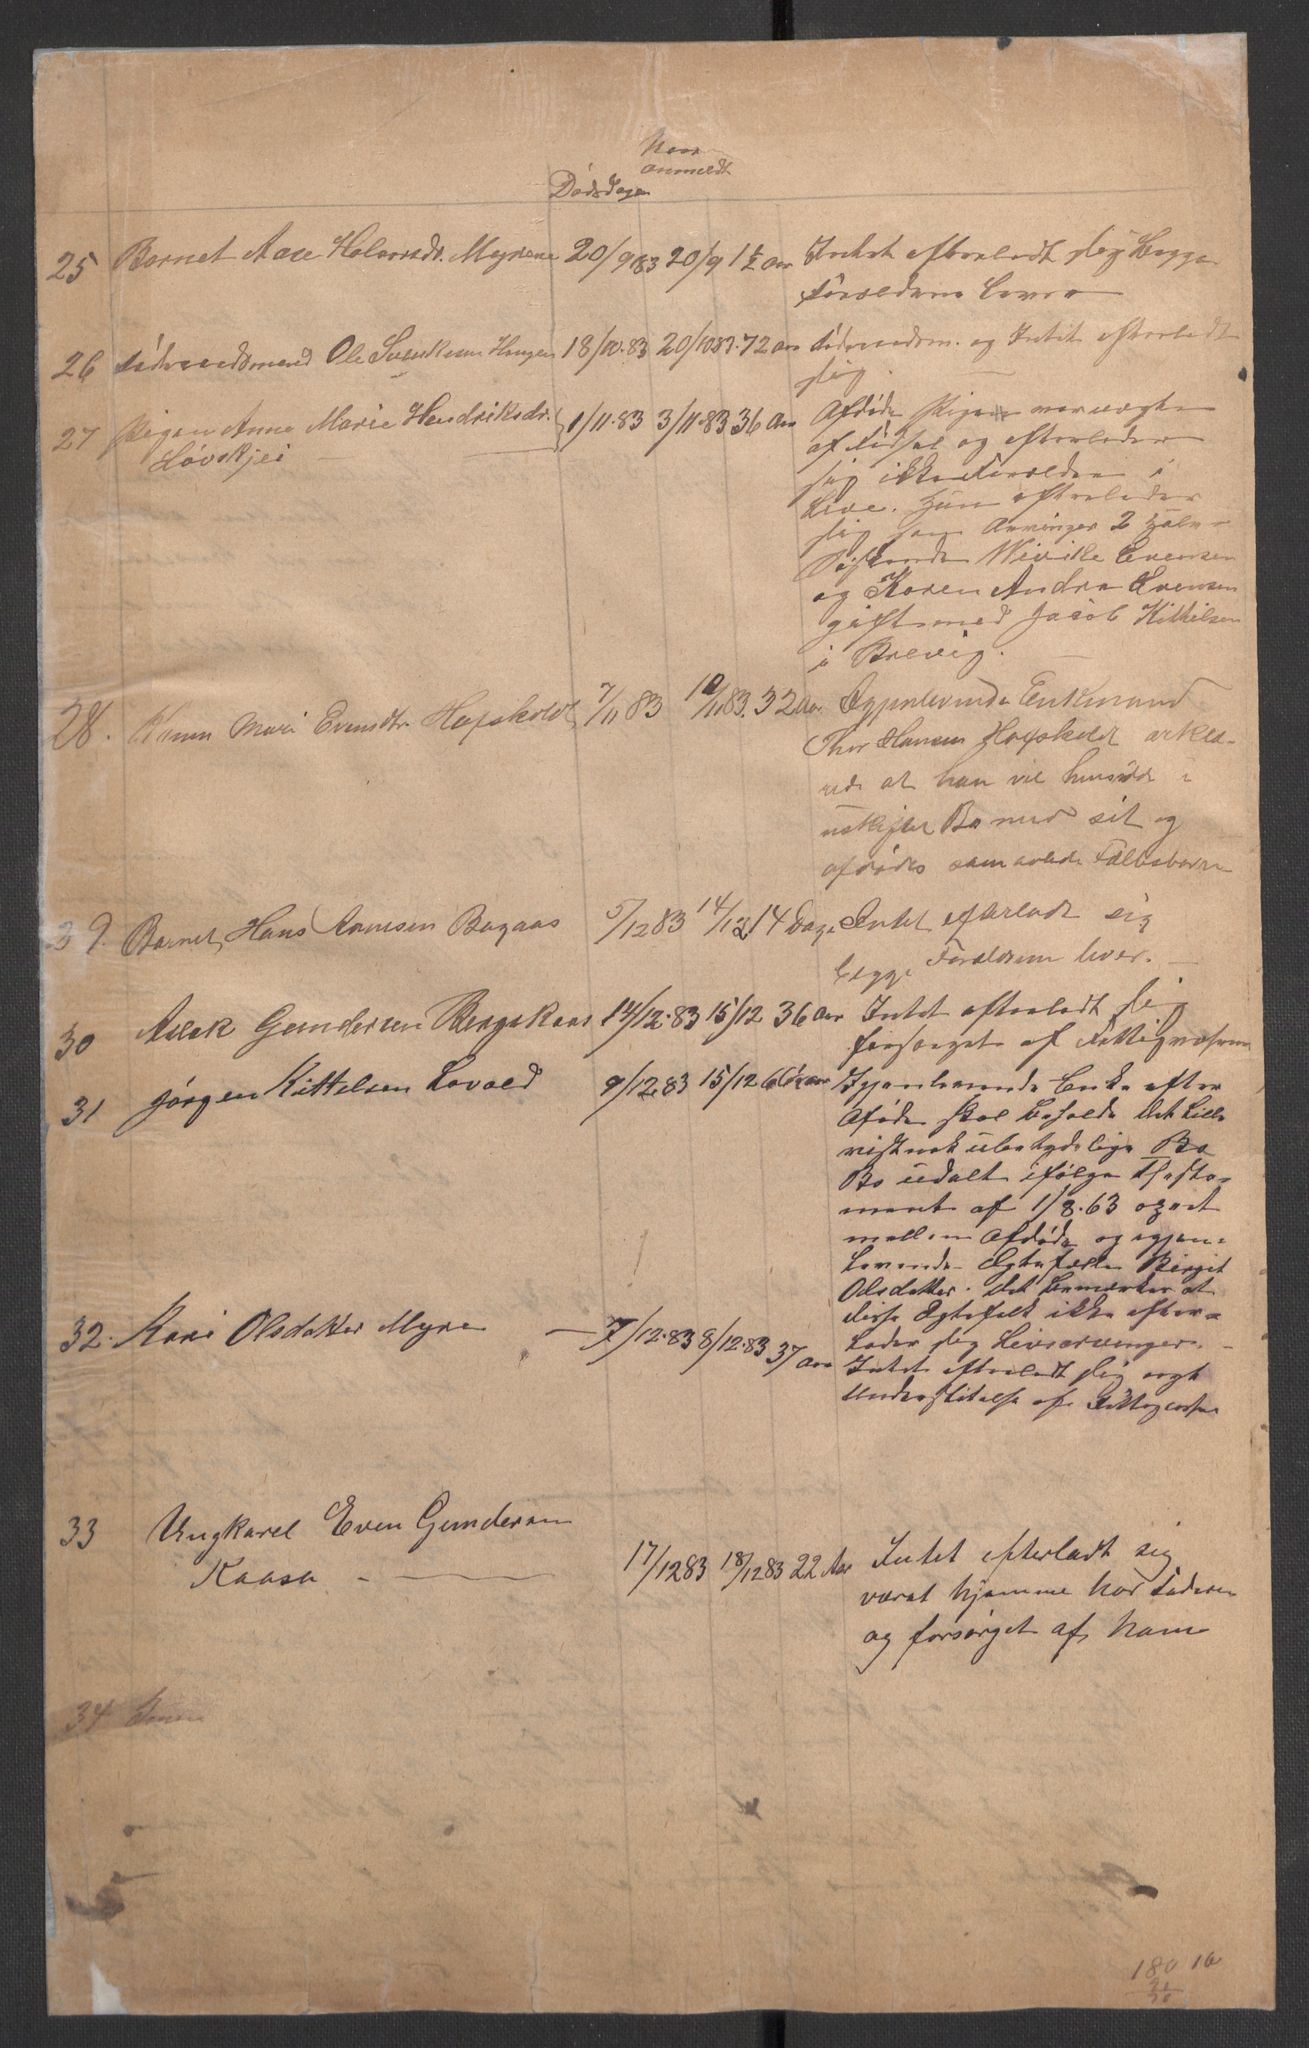 Naar
anmeldt
Dødsdagen
25 Barnet Aase Halvorsdr. Myrene 20/9 83 20/9 1½ Aar Intet efterladt sig Begge
Forældrene Lever
26 Føderaadsmand Ole Svenksen Haugen 18/10.83 20/10 83. 72 Aar Føderaadsm. og Intet efterladt
sig.
27 Pigen Anne Marie Hendriksdr. 1/11.83 3/11.83 36 Aar Afdøde Pigen var uægte
Høvskjei af Fødsel og efterlader
sig ikke Forældre i
Live. Hun efterlader
sig som Arvinger 2 Halv-
søskende Wivike Evensen
og Karen Andrea Evensen
gift med Jacob Kittilsen
i Brevig.
28. Karen Mari Evensdtr. Hafskoldt 7/11 83 10/11 83. 32 Aar. Egjenlevende Enkemand
Thor Hansen Hafskoldt erklæ-
rede at han vil hensidde i
uskiftet Bo med sit og
afdødes sammavlede Fællesbarn
29. Barnet Hans Aanesen Bagaas 5/12 83 14/12 14 Dage Intet efterladt sig
begge Forældrene lever.
30 Aslak Gundersen Bergskaas 14/12.83 15/12 36 Aar Intet efterladt sig
forsørget af Fattigvæsenet
31 Jørgen Kittelsen Lovald 9/12.83 15/12 Aar Igjenlevende Enke efter
Afdøde skal beholde det Lille
vistnok ubetydelige Bo
Bo udelt ifølge Testa-
ment af 1/8.63 opret
mellem Afdøde og igjen-
levende Ægtefælle Birgit
Olsdatter. Det bemærkes at
disse Ægtefolk ikke efter-
lader sig Livsarvinger.
32. Kari Olsdatter Myra — 7/12.83 8/12.83 37 Aar Intet efterladt sig nygt
Understøttelse af Fattigvæsen
33 Ungkarel Even Gundersen
Kaasa - — 17/12 83 18/12 83 22 Aar Intet efterladt sig
været hjemme hos Faderen
og forsørget af ham
34
180 16